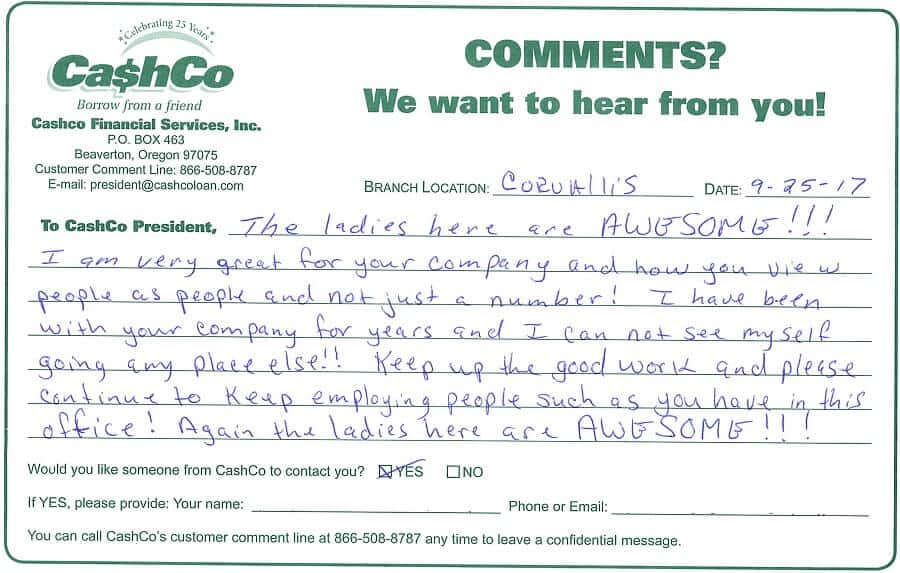 Celebrating 25 Years
Ca$hCo
Borrow from a friend
Cashco Financial Services, Inc.
P.O. BOX 463
Beaverton, Oregon 97075
Customer Comment Line: 866-508-8787
E-mail: president@cashcoloan.com
COMMENTS?
We want to hear from you!
BRANCH LOCATION: CORVAlliS DATE: 9-25-17
To CashCo President, The ladies here are AWESOME!!!
I am very great for your company and how you view
people as people and not just a number! I have been
with your company for years and I can not see myself
going any place else!! Keep up the good work and please
continue to Keep employing people such as you have in this
office! Again the ladies here are AWESOME!!!
Would you like someone from CashCo to contact you? YES NO
If YES, please provide: Your name: Phone or Email:
You can call CashCo's customer comment line at 866-508-8787 any time to leave a confidential message.